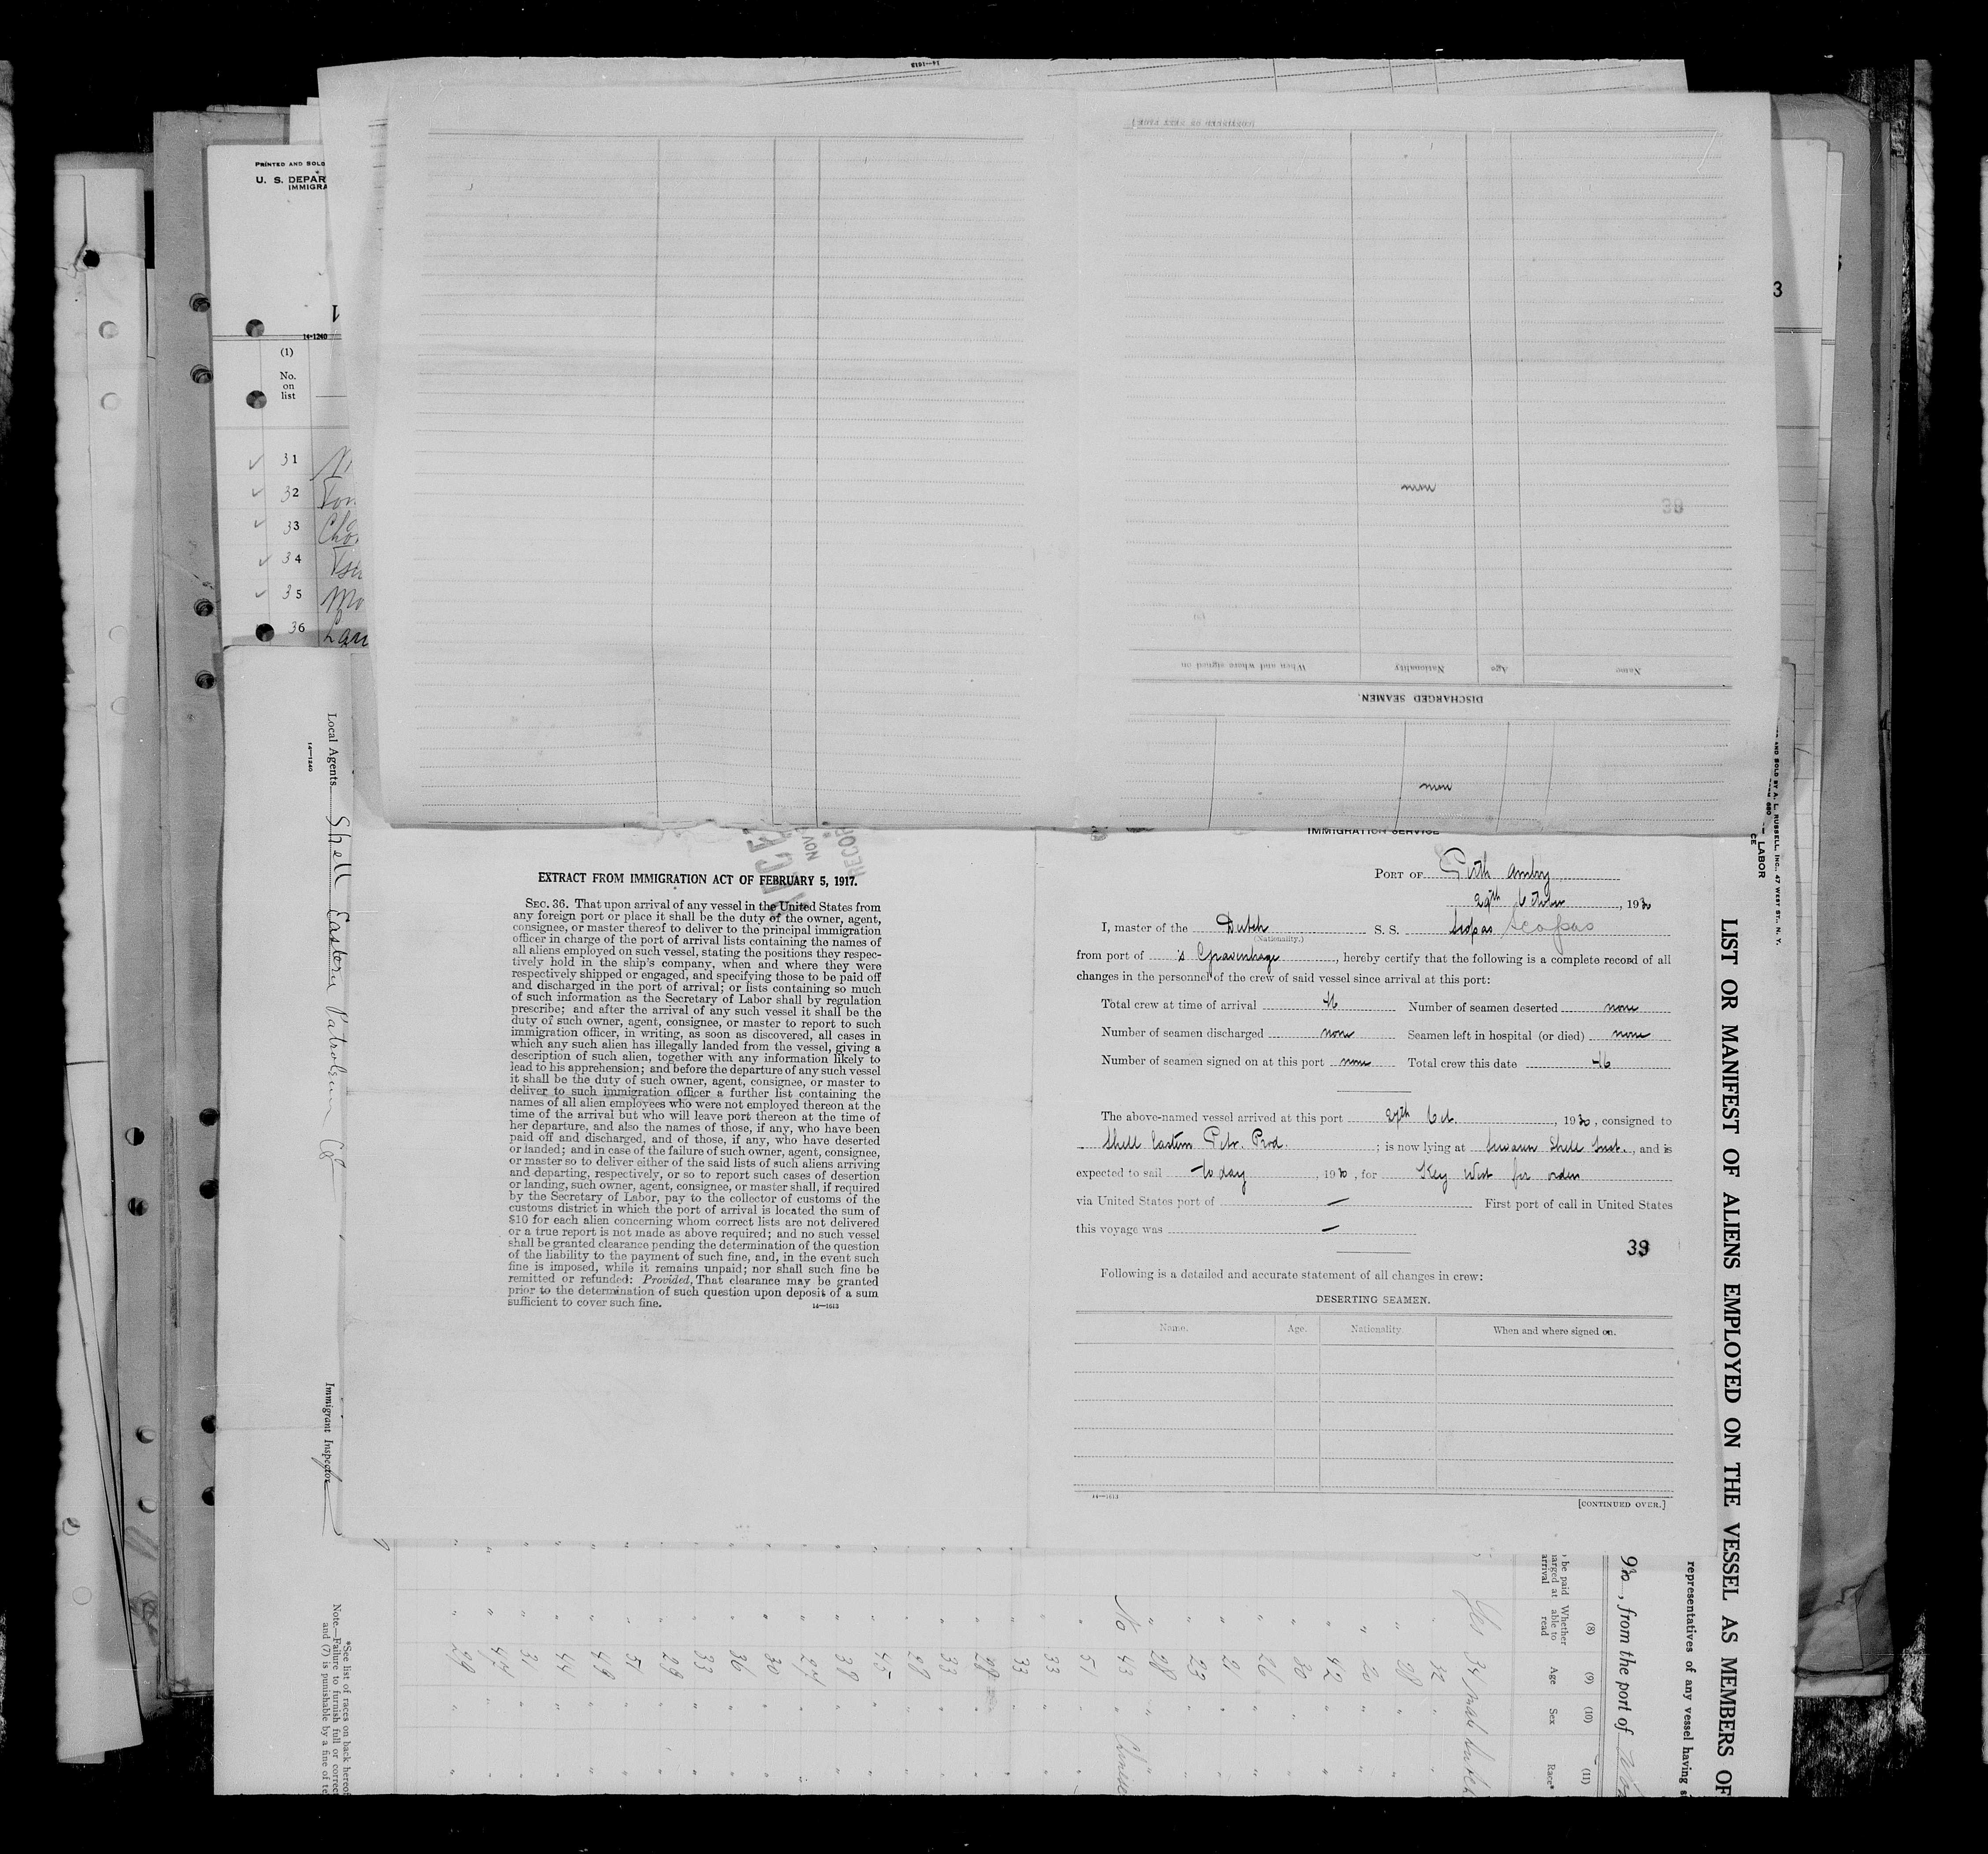 14—1613
PRINTED AND SOLD
U. S. DEPAR
IMMIGRA
14-1240
(1)
No.
on
list
31
32
33
34
35
36
3
[CONTINUED ON NEXT PAGE]
none
39
Name
Age
Nationality
When and where signed on
DISCHARGED SEAMEN.
none
Local Agents Shell Eastern Petroleum Co
14—1240
Immigrant Inspector
EXTRACT FROM IMMIGRATION ACT OF FEBRUARY 5, 1917.
SEC. 36. That upon arrival of any vessel in the United States from
any foreign port or place it shall be the duty of the owner, agent,
consignee, or master thereof to deliver to the principal immigration
officer in charge of the port of arrival lists containing the names of
all aliens employed on such vessel, stating the positions they respec-
tively hold in the ship's company, when and where they were
respectively shipped or engaged, and specifying those to be paid off
and discharged in the port of arrival; or lists containing so much
of such information as the Secretary of Labor shall by regulation
prescribe; and after the arrival of any such vessel it shall be the
duty of such owner, agent, consignee, or master to report to such
immigration officer, in writing, as soon as discovered, all cases in
which any such alien has illegally landed from the vessel, giving a
description of such alien, together with any information likely to
lead to his apprehension; and before the departure of any such vessel
it shall be the duty of such owner, agent, consignee, or master to
deliver to such immigration officer a further list containing the
names of all alien employees who were not employed thereon at the
time of the arrival but who will leave port thereon at the time of
her departure, and also the names of those, if any, who have been
paid off and discharged, and of those, if any, who have deserted
or landed; and in case of the failure of such owner, agent, consignee,
or master so to deliver either of the said lists of such aliens arriving
and departing, respectively, or so to report such cases of desertion
or landing, such owner, agent, consignee, or master shall, if required
by the Secretary of Labor, pay to the collector of customs of the
customs district in which the port of arrival is located the sum of
$10 for each alien concerning whom correct lists are not delivered
or a true report is not made as above required; and no such vessel
shall be granted clearance pending the determination of the question
of the liability to the payment of such fine, and, in the event such
fine is imposed, while it remains unpaid; nor shall such fine be
remitted or refunded: Provided, That clearance may be granted
prior to the determination of such question upon deposit of a sum
sufficient to cover such fine.
14—1613
IMMIGRATION SERVICE
PORT OF Perth Amboy
29th October, 1930
I, master of the Dutch S. S. Scopas Scopas
(Nationality.)
from port of 's Gravenhage, hereby certify that the following is a complete record of all
changes in the personnel of the crew of said vessel since arrival at this port:
Total crew at time of arrival 46 Number of seamen deserted none
Number of seamen discharged none Seamen left in hospital (or died) none
Number of seamen signed on at this port none Total crew this date 46
The above-named vessel arrived at this port 27th Oct., 1930, consigned to
Shell Eastern Petr. Prod.; is now lying at Shell, and is
expected to sail to day, 1930, for Key West for orders
via United States port of — First port of call in United States
this voyage was —
39
Following is a detailed and accurate statement of all changes in crew:
DESERTING SEAMEN.
Name. Age. Nationality. When and where signed on.
14—1613
[CONTINUED OVER.]
AND SOLD BY A. L. RUSSELL, INC., 47 WEST ST., N. Y.
LABOR
LIST OR MANIFEST OF ALIENS EMPLOYED ON THE VESSEL AS MEMBERS OF
representatives of any vessel having
930, from the port of
(8) (9) (10) (11)
Whether able to read
Age
Sex
Race*
Yes 34 male Dutch
32
28
20
42
30
26
21
23
28
No 43 Chinese
51
33
33
28
33
28
45
38
27
30
36
33
29
51
48
44
31
47
29
*See list of races on back hereof
Note—Failure to furnish full or correct
and (7) is punishable by a fine of te